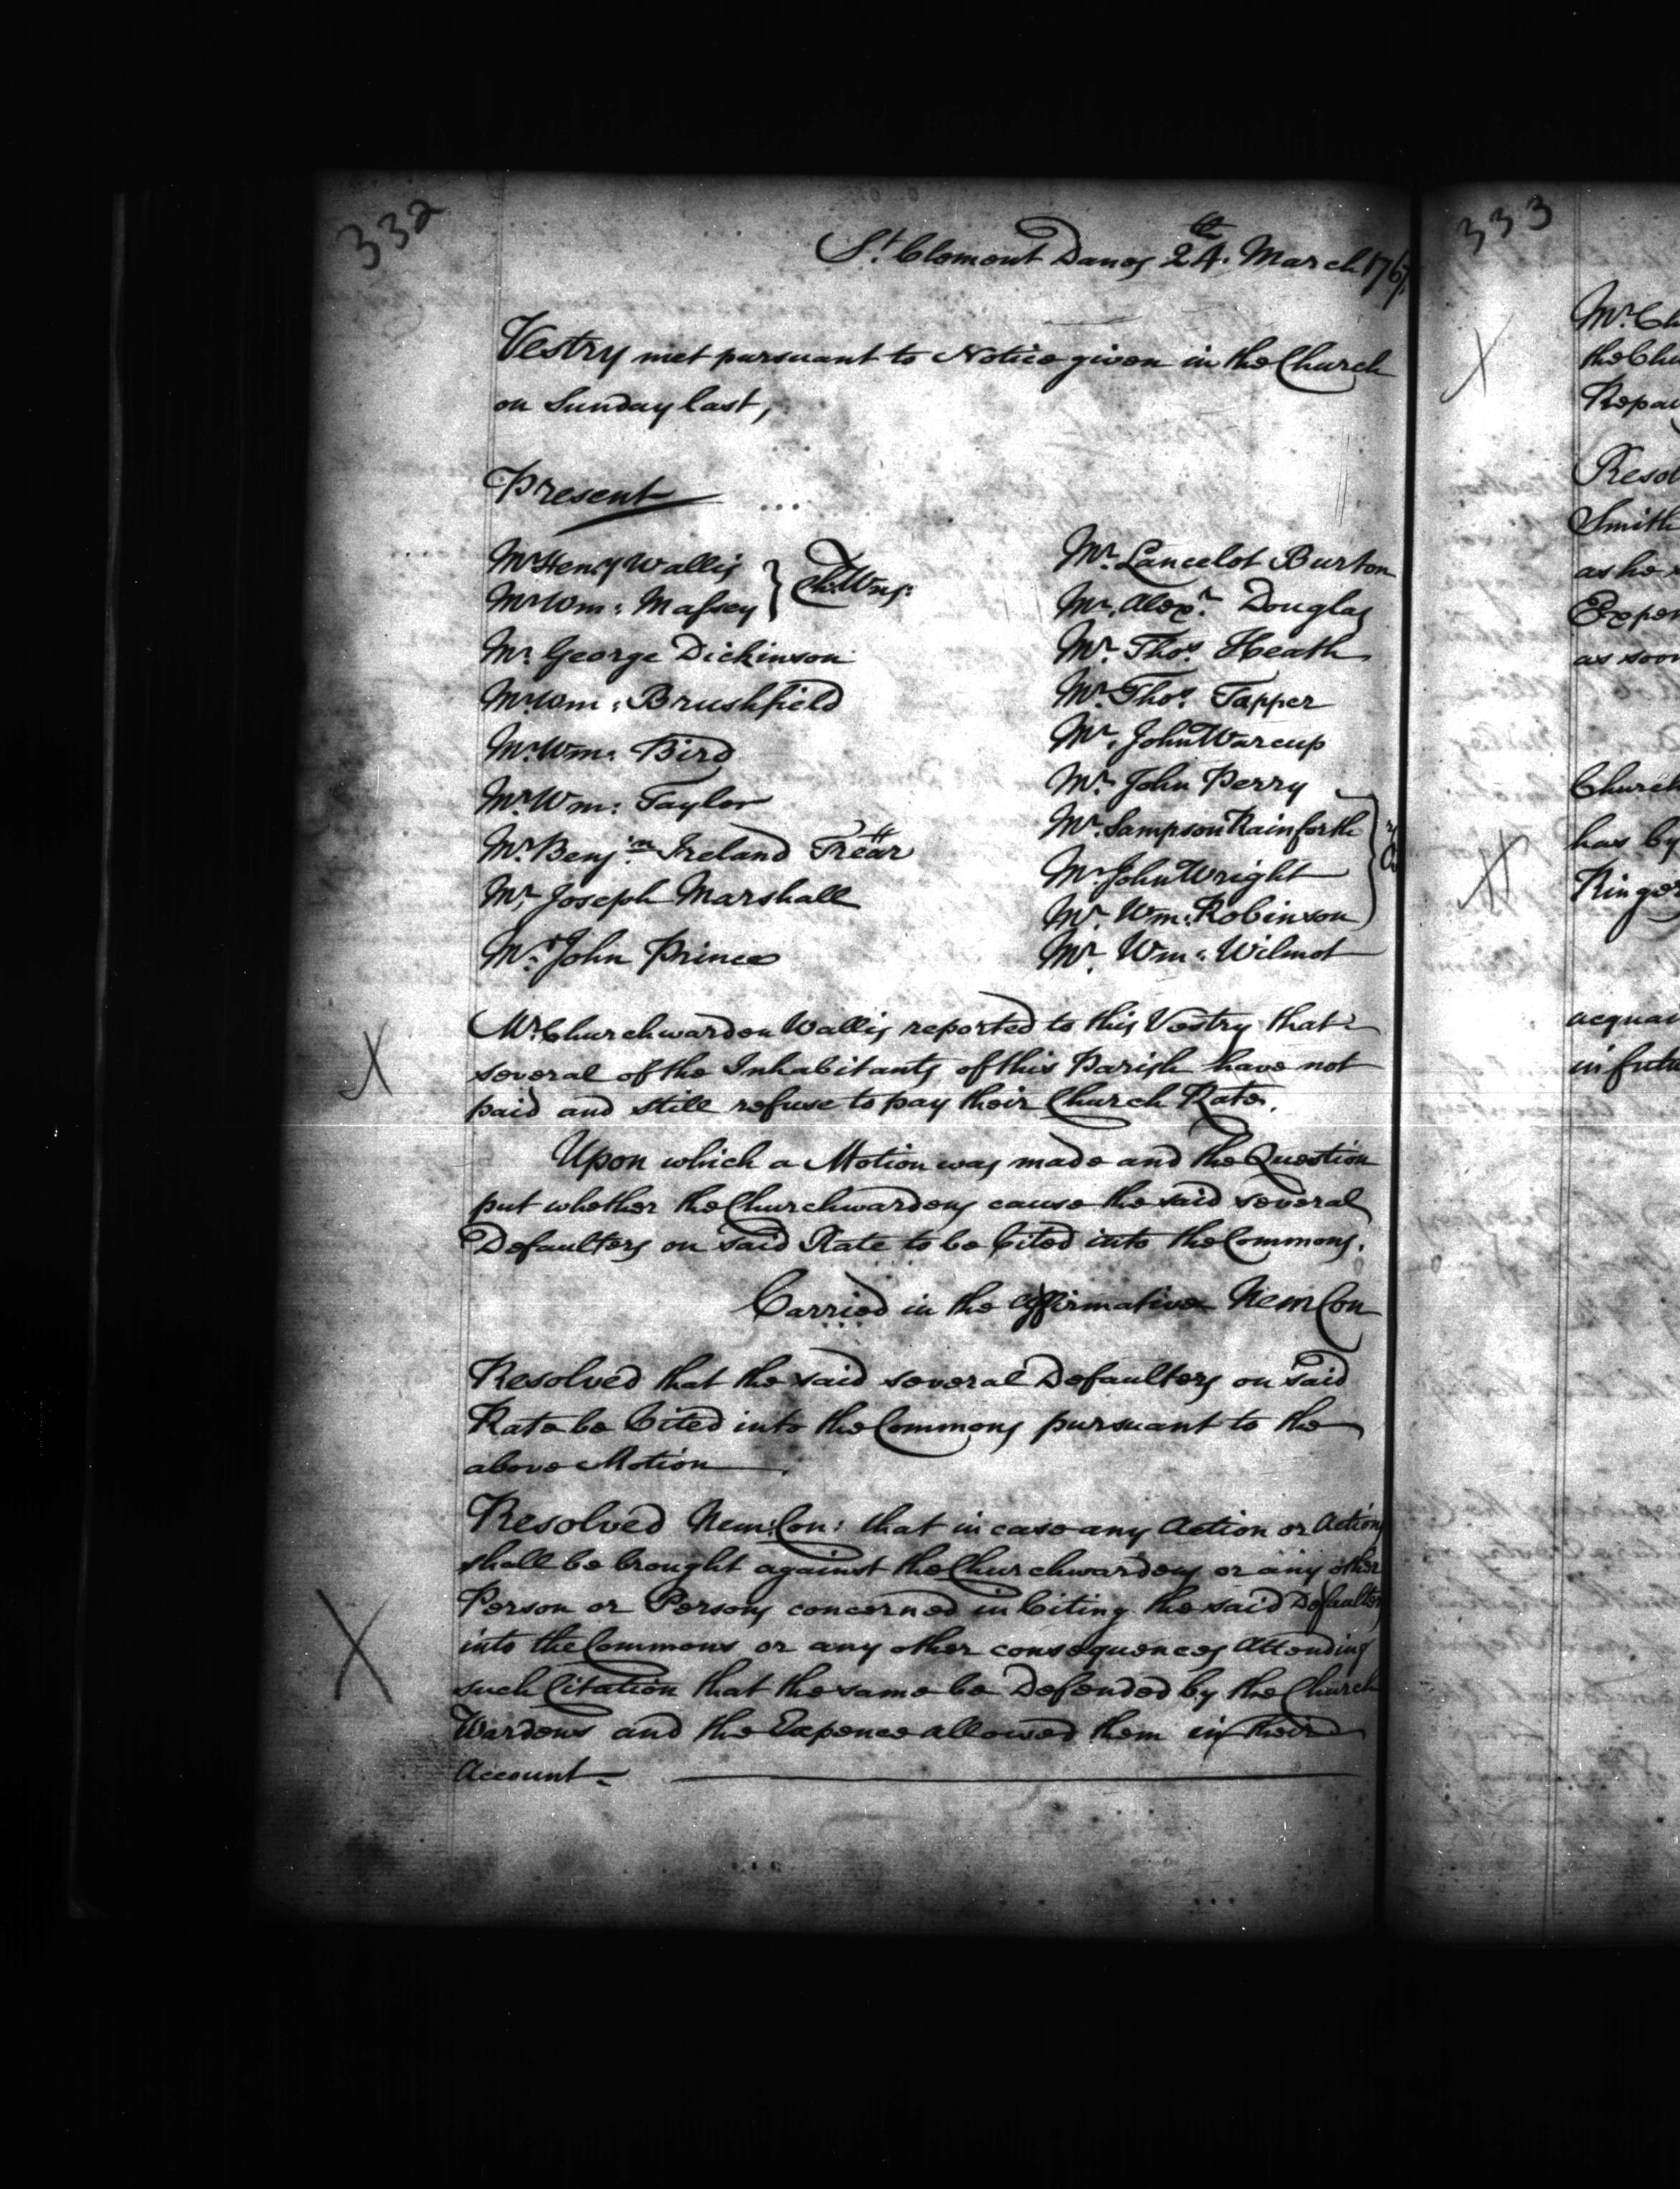 332
St. Clement Danes 24th. March 1767.
Vestry met pursuant to Notice given in the Church
on Sunday last,
Present
Mr Henry Wallis } Ch:Wns:
Mr Wm: Massey
Mr. George Dickinson
Mr. Wm: Brushfield
Mr. Wm: Bird
Mr. Wm: Taylor
Mr. Benjn. Ireland Trear
Mr. Joseph Marshall
Mr. John Prince
Mr. Lancelot Burton
Mr. Alexr. Douglas
Mr. Thos. Heath
Mr. Thos. Tapper
Mr. John Warcup
Mr. John Perry
Mr. Sampson Rainforth
Mr John Wright
Mr. Wm: Robinson
Mr. Wm: Wilmot
Mr. Churchwarden Wallis reported to this Vestry that
several of the Inhabitants of this Parish have not
paid and still refuse to pay their Church Rate.
Upon which a Motion was made and the Question
put whether the Churchwardens cause the said several
Defaulters on said Rate to be Cited into the Commons.
Carried in the affirmative Nem Con
Resolved that the said several Defaulters on said
Rate be Cited into the Commons pursuant to the
above Motion
Resolved Nem: Con: that in case any Action or Actions
shall be brought against the Churchwardens or any other
Person or Persons concerned in Citing the said Defaulters
into the Commons or any other consequences Attending
such Citation that the same be Defended by the Church
Wardens and the Expence allowed them in their
Account.
333
Mr. Ch
the Chu
Repai
Resol
Smith
as he
Expen
as soon
Church
has by
Ringe
acquai
in futu